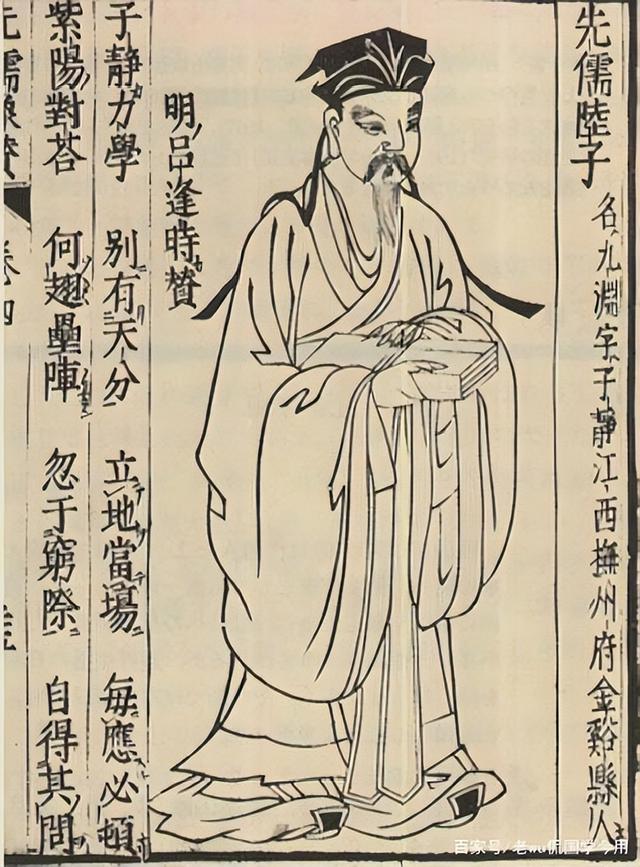 先儒陸子 名九淵字子靜江西撫州府金谿縣人
明呂逢時贊
子靜力學 別有天分 立地當塲 每應必頓
紫陽對荅 何翅壘陣 忽于窮際 自得其問
先儒像贊 卷四
百家号/老wu侃国学今用